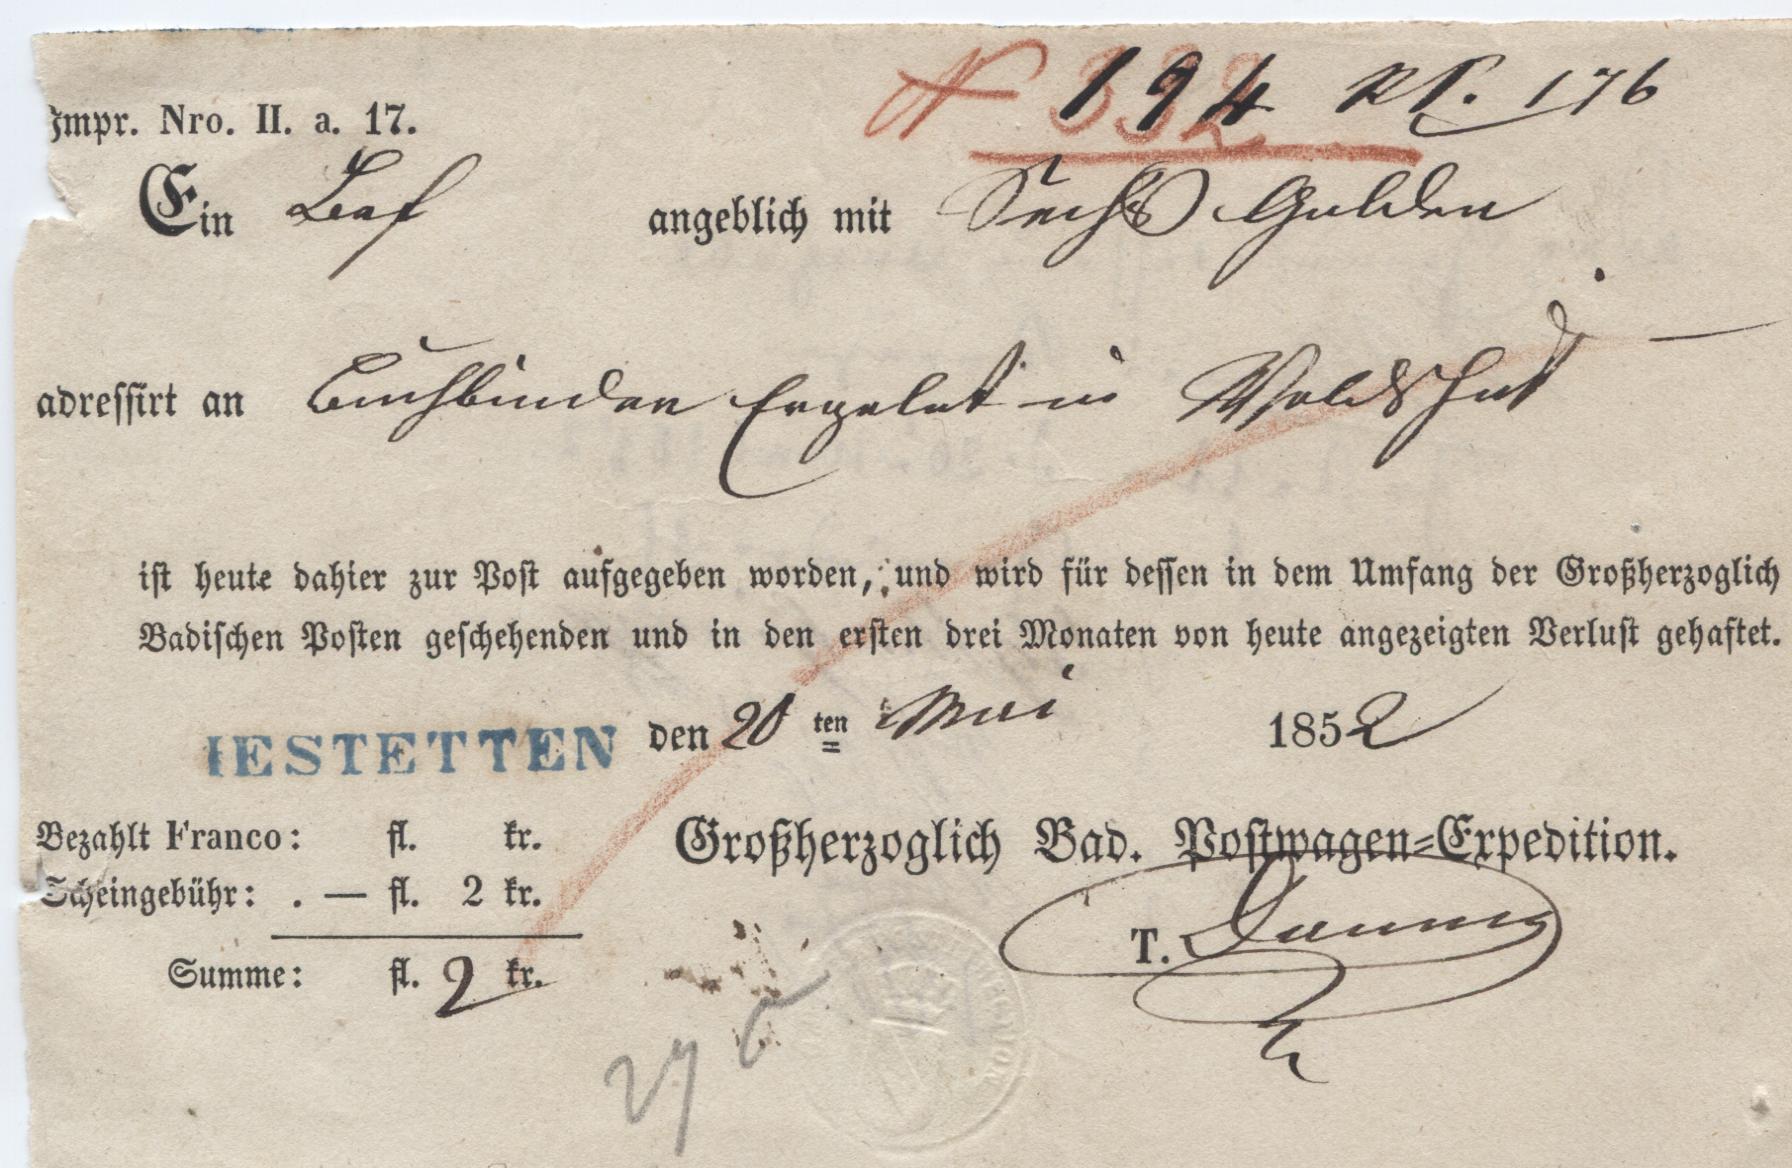 Impr. Nro. II. a. 17.
N 332 194 176
Ein angeblich mit Sechs Gulden
adressirt an Buchbinder in Waldshut
ist heute dahier zur Post aufgegeben worden, und wird für dessen in dem Umfang der Großherzoglich
Badischen Posten geschehenden und in den ersten drei Monaten von heute angezeigten Verlust gehaftet.
IESTETTEN den 20 ten Mai 1852
Bezahlt Franco: fl. kr. Großherzoglich Bad. Postwagen=Expedition.
Scheingebühr: . — fl. 2 kr.
T.
Summe: fl. 2 kr.